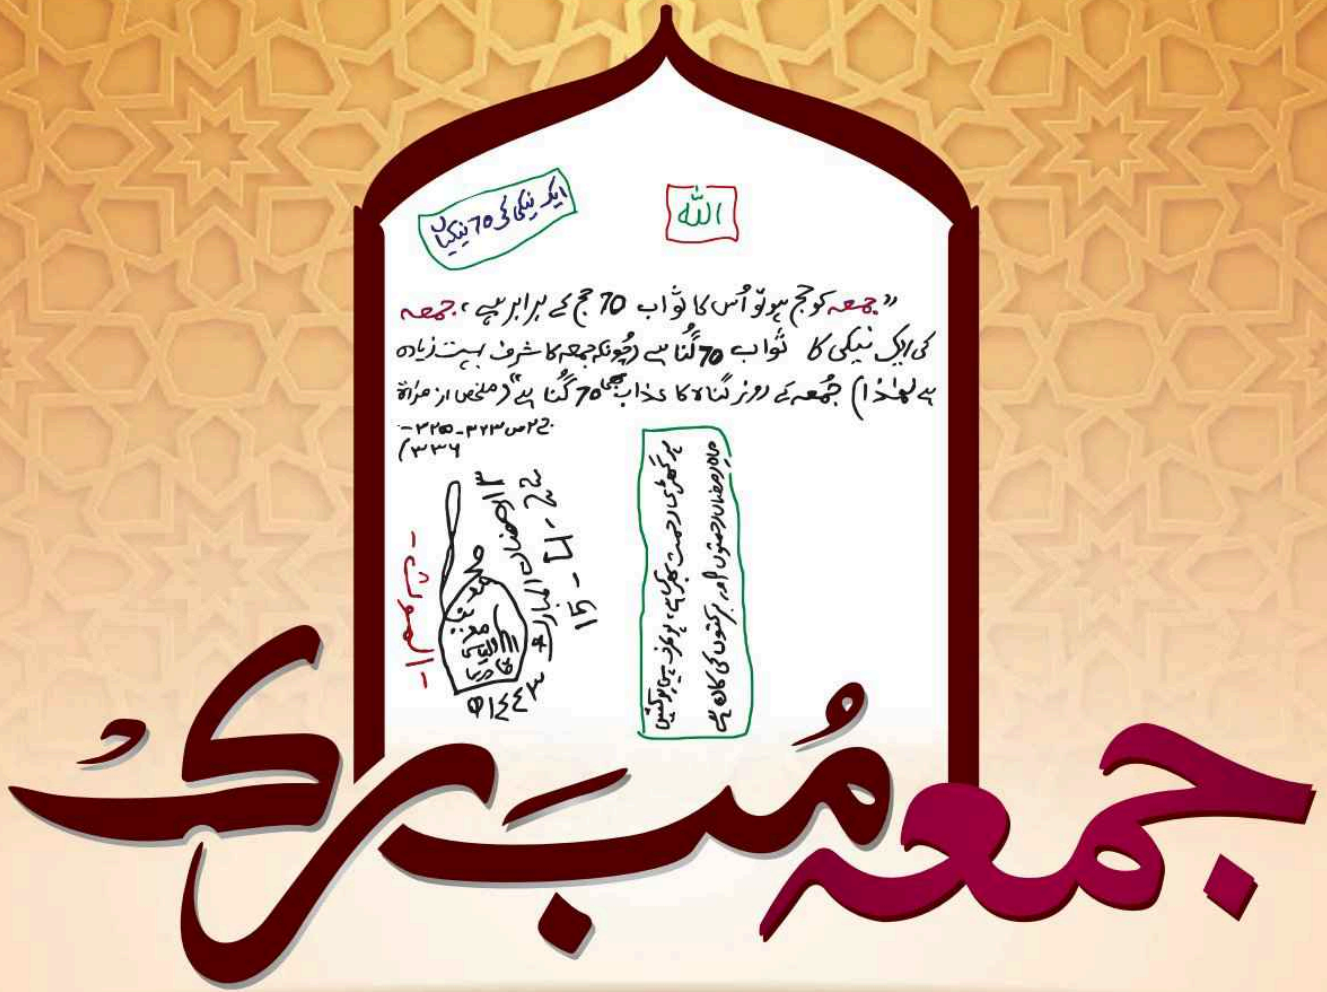 الله
ایک نیکی کی 70 نیکیاں
”جمعہ کو حج ہو تو اُس کا ثواب 70 حج کے برابر ہے، جمعہ
کی ایک نیکی کا ثواب 70 گُنا ہے (چونکہ جمعہ کا شرف بہت زیادہ
ہے لھٰذا) جُمعہ کے روز گناہ کا عذاب بھی 70 گُنا ہے“ (ملخص از مراٰۃ
ج۲ ص ۳۲۳-۳۲۵-
۳۳۶)
ہر گھڑی رحمت بھری ہے، ہر طرف ہیں برکتیں
ماہِ رمضاں رحمتوں اور برکتوں کی کان ہے
۱۳ رمضان المبارک
۱٤٤۳ھ
15-4-22
جمعہ مُبَارک